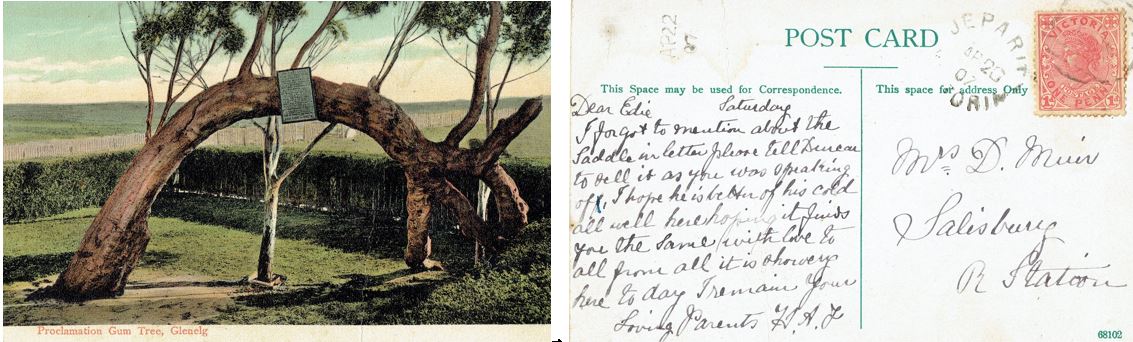 Proclamation Gum Tree, Glenelg
AP 22
07
POST CARD
JEPARIT
AP 20
07
VICTORIA
ONE PENNY
1D 1D
This Space may be used for Correspondence.
This space for address Only
Dear Edie Saturday
I forgot to mention about the
Saddle in letter please tell Duncan
to sell it as you was speaking
off, I hope he is better of his cold
all well here hoping it finds
you the same, with love to
all from all it is showery
here to day I remain Your
Loving Parents
Mrs D. Muir
Salisbury
R Station
68102